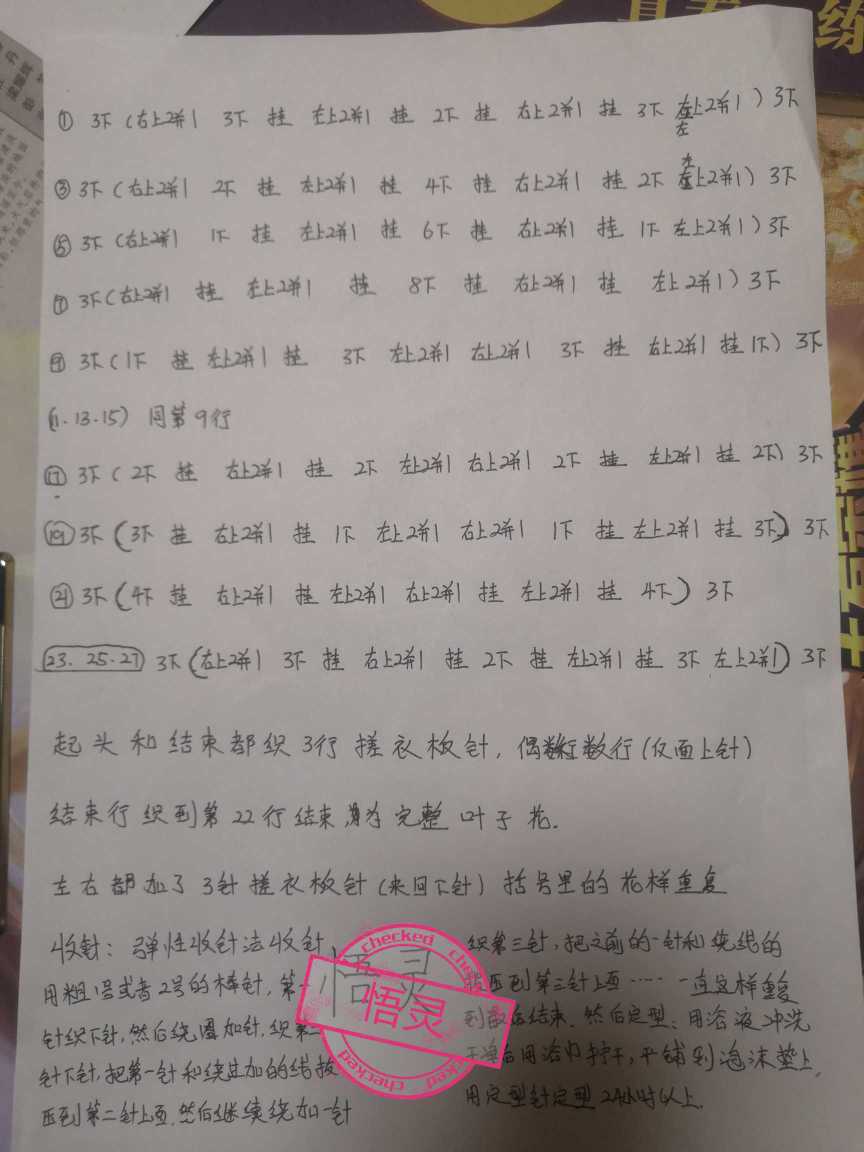 练
① 3下(右上2并1 3下 挂 左上2并1 挂 2下 挂 右上2并1 挂 3下 左上2并1) 3下
左
③ 3下(右上2并1 2下 挂 左上2并1 挂 4下 挂 右上2并1 挂 2下 左上2并1) 3下
⑤ 3下(右上2并1 1下 挂 左上2并1 挂 6下 挂 右上2并1 挂 1下 左上2并1) 3下
⑦ 3下(右上2并1 挂 左上2并1 挂 8下 挂 右上2并1 挂 左上2并1) 3下
⑨ 3下(1下 挂 左上2并1 挂 3下 左上2并1 右上2并1 3下 挂 右上2并1 挂 1下) 3下
(11.13.15) 同第9行
⑰ 3下(2下 挂 右上2并1 挂 2下 左上2并1 右上2并1 2下 挂 左上2并1 挂 2下) 3下
⑲ 3下(3下 挂 右上2并1 挂 1下 左上2并1 右上2并1 1下 挂 左上2并1 挂 3下) 3下
㉑ 3下(4下 挂 右上2并1 挂 左上2并1 右上2并1 挂 左上2并1 挂 4下) 3下
23.25.27 3下(右上2并1 3下 挂 右上2并1 挂 2下 挂 左上2并1 挂 3下 左上2并1) 3下
起头和结束都织3行搓衣板针,偶数行(反面上针)
结束行织到第22行结束,为完整叶子花.
左右都加了3针搓衣板针(来回下针)括号里的花样重复
收针:弹性收针法收针
用粗1号或者2号的棒针,第一
针织下针,然后绕圈加针.织第二
针下针,把第一针和绕线加的结拔
压到第二针上面.然后继续绕加一针
织第三针,把之前的一针和绕线的
压到第三针上面……一直这样重复
到最后结束.然后定型:用溶液冲洗
干净后用浴巾拧干,平铺到泡沫垫上,
用定型针定型24小时以上.
checked
悟灵
悟灵
checked